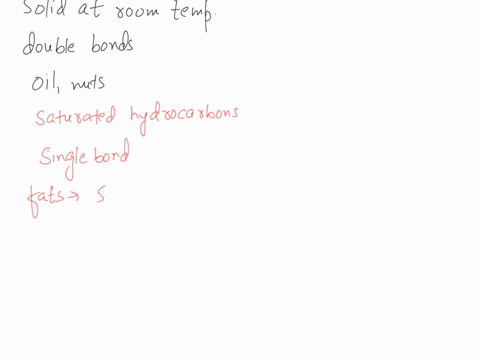 Solid at room temp.
double bonds
Oil, nuts
Saturated hydrocarbons
Single bond
fats → S